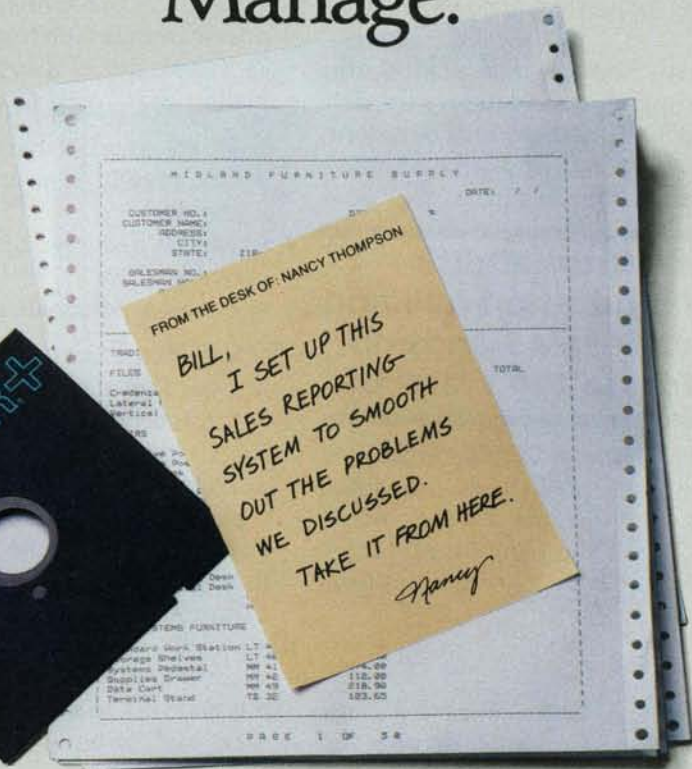 Manage.
MIDLAND FURNITURE SUPPLY
DATE: / /
CUSTOMER NO.:
CUSTOMER NAME:
ADDRESS:
CITY:
STATE:
SALESMAN NO.:
FROM THE DESK OF: NANCY THOMPSON
BILL,
I SET UP THIS
SALES REPORTING
SYSTEM TO SMOOTH
OUT THE PROBLEMS
WE DISCUSSED.
TAKE IT FROM HERE.
Nancy
FILES
TOTAL
Credenza
Lateral
Vertical
Desk
Desk
FURNITURE
Work Station LT
Shelves LT
Systems Pedestal MM 41
Supplies Drawer MM 42 110.00
Data Cart MM 49 218.90
Terminal Stand TS 32 103.65
PAGE 1 OF 50